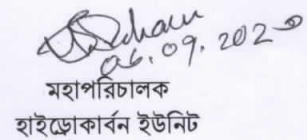 06.09.2020
মহাপরিচালক
হাইড্রোকার্বন ইউনিট